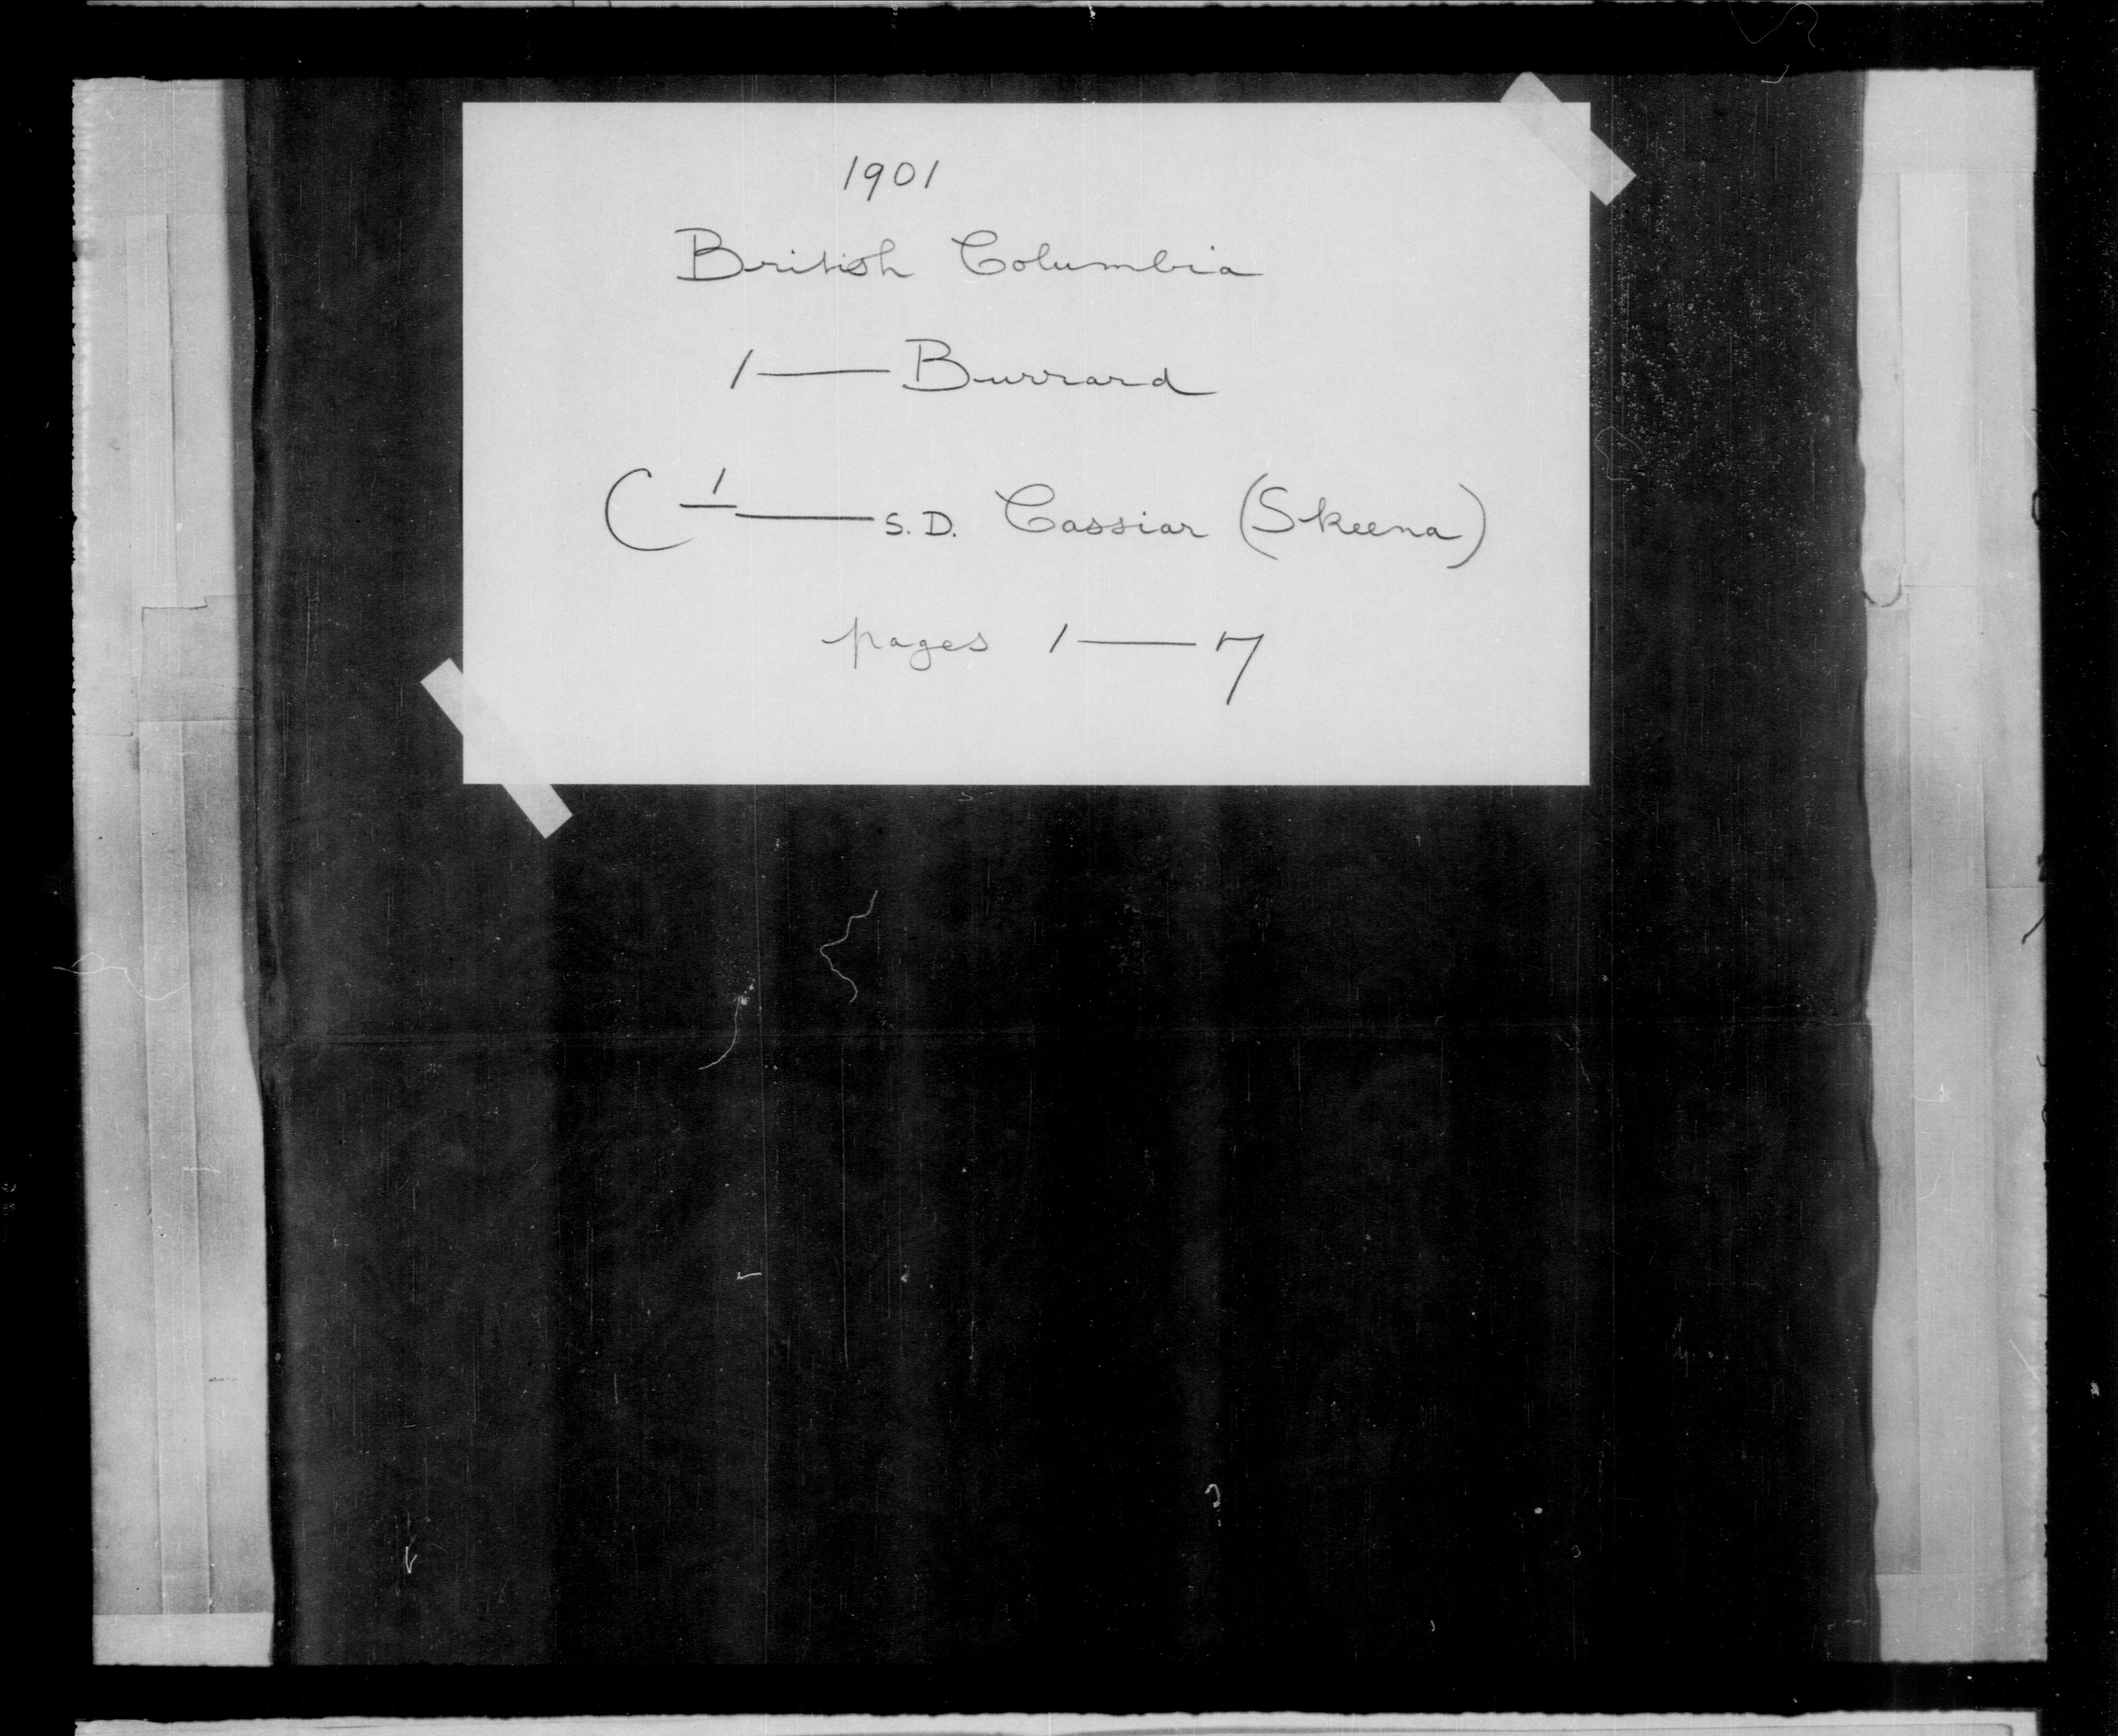 1901
British Columbia
1 — Burrard
C 1 — S.D. Cassiar (Skeena)
pages 1 — 7